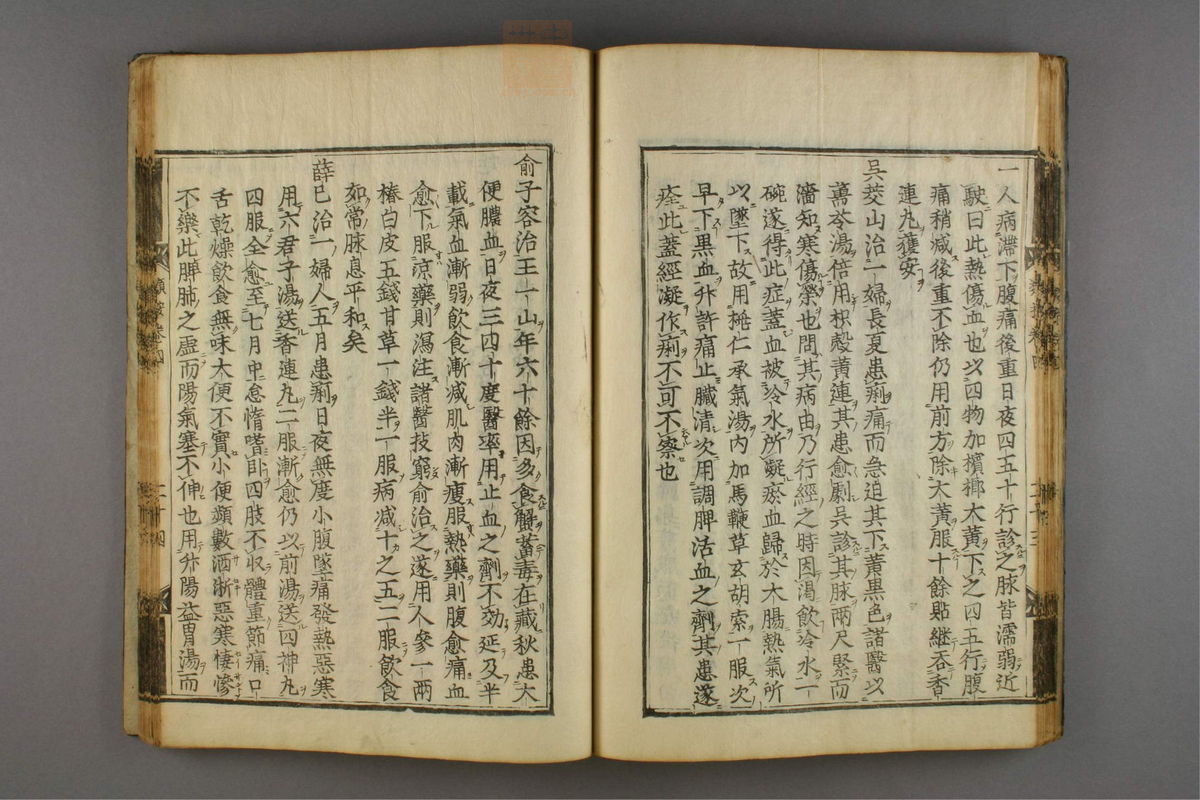 一人病滯下腹痛後重日夜四五十行診之脉皆濡弱近
駛曰此熱傷血也以四物加檳榔大黃下之四五行腹
痛稍減後重不除仍用前方除大黃服十餘貼継吞香
連丸獲安
吳茭山治一婦長夏患痢痛而急迫其下黃黑色諸醫以
薷苓湯倍用枳殼黃連其患愈劇吳診其脉兩尺緊而
濇知寒傷榮也問其病由乃行經之時因渴飲冷水一
碗遂得此症蓋血被冷水所凝瘀血歸於大腸熱氣所
以墜下故用桃仁承氣湯内加馬鞭草玄胡索一服次
早下黑血升許痛止臟清次用調脾活血之劑其患遂
痊此蓋經凝作痢不可不察也
俞子容治王一山年六十餘因多食蟹蓄毒在藏秋患大
便膿血日夜三四十度醫率用止血之劑不効延及半
載氣血漸弱飲食漸減肌肉漸瘦服熱藥則腹愈痛血
愈下服涼藥則瀉注諸醫技窮俞治之遂用人參一兩
椿白皮五錢甘草一錢半一服病減十之五二服飲食
如常脉息平和矣
薛已治一婦人五月患痢日夜無度小腹墜痛發熱惡寒
用六君子湯送香連丸二服漸愈仍以前湯送四神丸
四服全愈至七月中怠惰嗜卧四肢不收體重節痛口
舌乾燥飲食無味大便不實小便頻數洒淅惡寒悽慘
不樂此脾肺之虛而陽氣塞不伸也用升陽益胃湯而